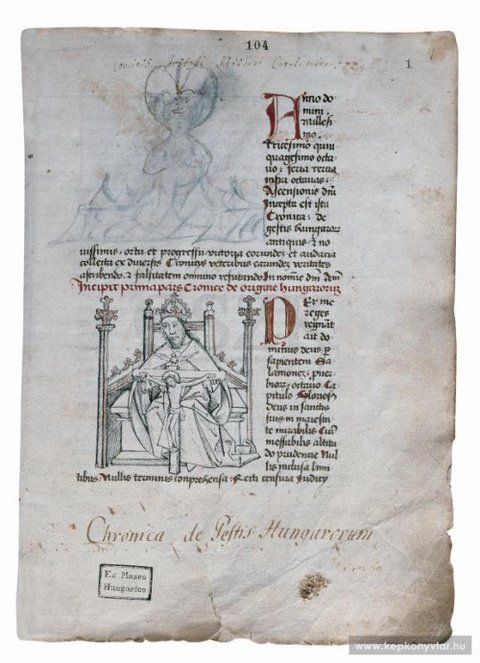 104
1
Anno do
mini
Millesi
mo
tricesimo quin
quagesimo octa
uo: feria tercia
infra octauas
Ascensionis dnī
Incepta est ista
Cronica: de
gestis hungaror
antiquis et no
uissimis ortu et progressu uictoria eorundem et audacia
collecta ex diuersis Cronicis veteribus earundem veritates
ascribendo et falsitatem omnino refutando In nomine dnī
Incipit prima pars Cronice de origine hungarorum
Per me
reges
regnāt
ait do
minus deus p
sapientem Sa
lamonem: puer
biorum octauo Ca
pitulo Gloriosus
deus in sanctis
suis in maiesta
te mirabilis Cuiꝰ
ineffabilis altitu
do prudencie Nul
lis inclusa limi
tibus: Nullis terminis comprehensa: Recti censura Iudicy
Chronica de Gestis Hungarorum
Ex Museo
Hungarico
www.kepkonyvtar.hu